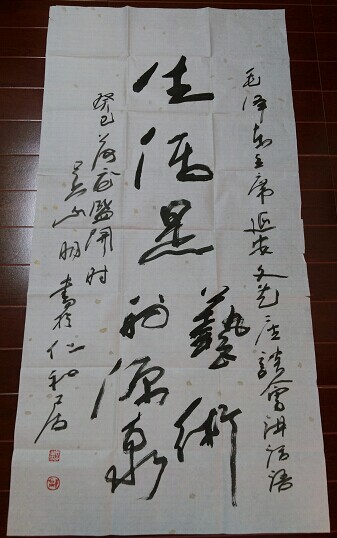 毛泽东主席延安文艺座談會讲话语
生活是
藝術
的源泉
癸巳荷花盛開时
吴山明書於仁和居